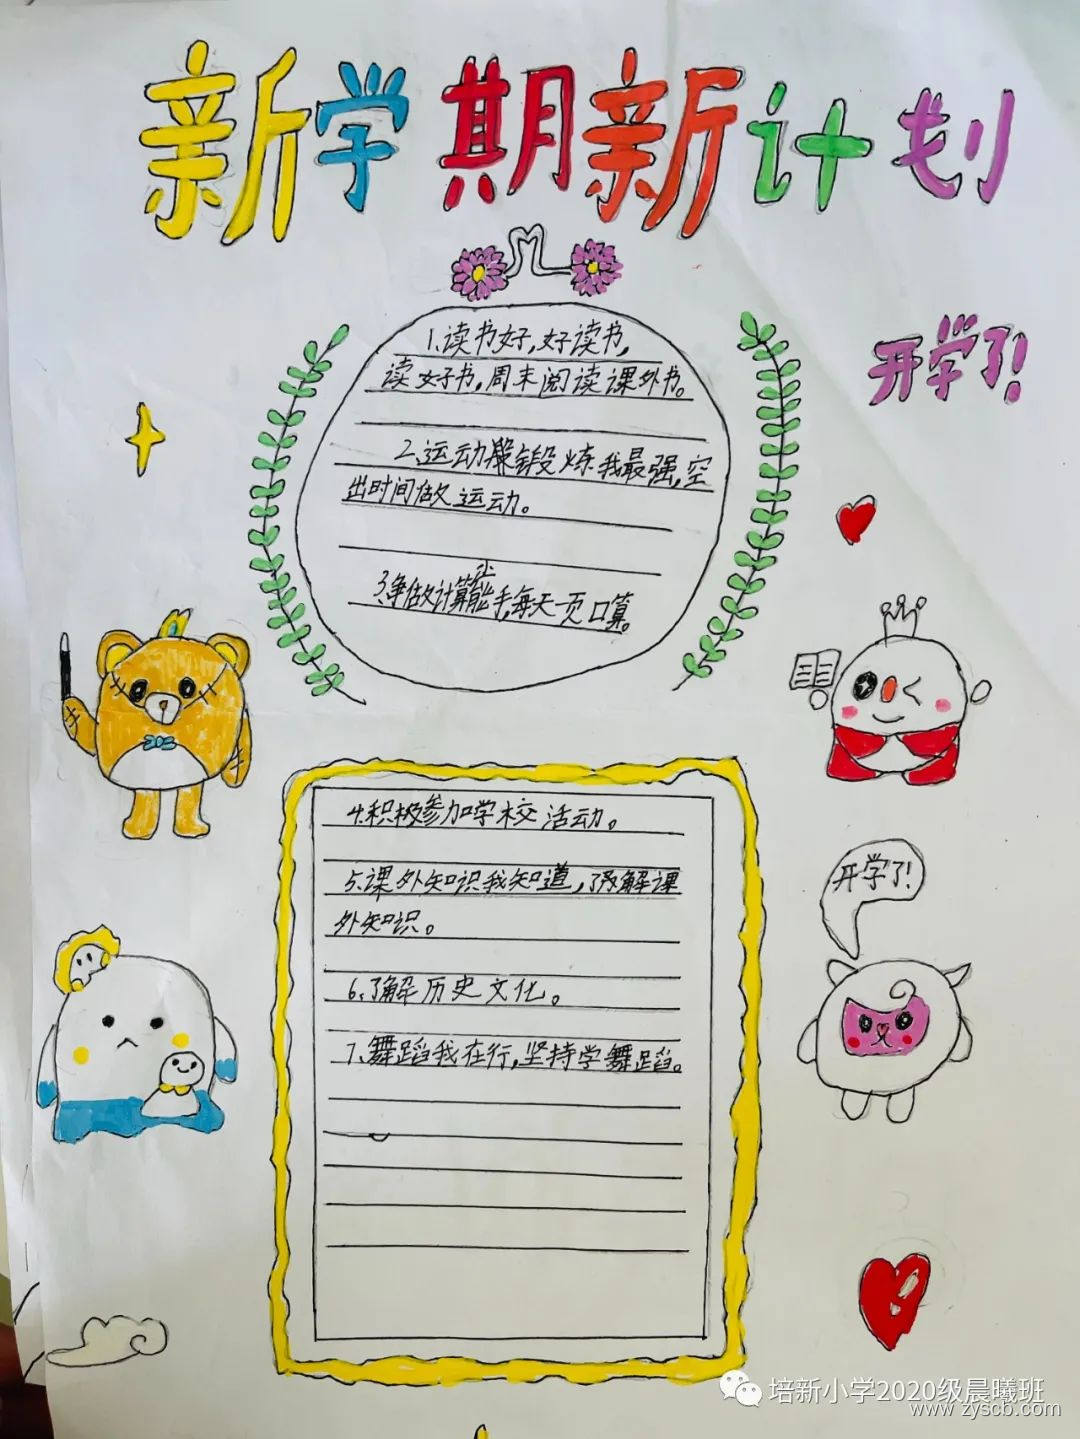 新学期新计划
开学了!
1.读书好,好读书,
读好书,周末阅读课外书。
2.运动锻炼我最强,空
出时间做运动。
3.争做计算小能手,每天一页口算。
4.积极参加学校活动。
5.课外知识我知道,了解课
外知识。
开学了!
6.了解历史文化。
7.舞蹈我在行,坚持学舞蹈。
培新小学2020级晨曦班
www.zyscb.com